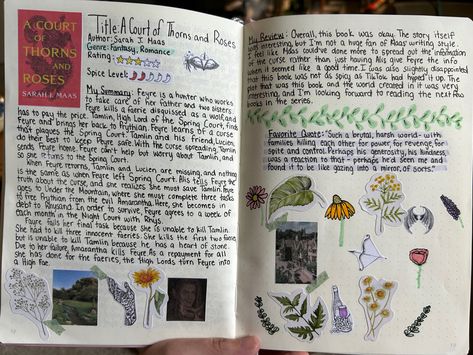 A COURT
OF
THORNS
AND
ROSES
SARAH J. MAAS
Title: A Court of Thorns and Roses
Author: Sarah J. Maas
Genre: Fantasy, Romance
Rating:
Spice Level:
My Summary: Feyre is a hunter who works
to take care of her father and two sisters.
Feyre kills a faerie disguised as a wolf, and
has to pay the price. Tamlin, High Lord of the Spring Court, finds
Feyre and brings her back to Prythian. Feyre learns of a curse
that plagues the Spring Court. Tamlin and his friend, Lucien,
do their best to keep Feyre safe. With the curse spreading, Tamlin
sends Feyre home. Feyre can't help but worry about Tamlin, and
so she returns to the Spring Court.
When Feyre returns, Tamlin and Lucien are missing, and nothing
is the same as when Feyre left Spring Court. Alis tells Feyre the
truth about the curse, and she realizes she must save Tamlin. She
goes to Under the Mountain, where she must complete three tasks
to free Prythian from the evil Amarantha. Here, she becomes in
debt to Rhysand. In order to survive, Feyre agrees to a week of
each month in the Night Court with Rhys.
Feyre fails her final task because she is unable to kill Tamlin.
She had to kill three innocent faeries. She kills the first two faeries
but is unable to kill Tamlin because he has a heart of stone.
Due to her failure, Amarantha kills Feyre. As a repayment for all
she has done for the faeries, the High Lords turn Feyre into
a High Fae.
My Review: Overall, this book was okay. The story itself
was interesting, but I'm not a huge fan of Maas' writing style.
I feel like Maas could've done more to spread out the information
of the curse rather than just having Alis give Feyre the info
when it seemed like a good time. I was also slightly disappointed
that this book was not as spicy as TikTok had hyped it up. The
plot that was this book and the world created in it was very
interesting, and I'm looking forward to reading the next few
books in the series.
Favorite Quote: "Such a brutal, harsh world- with
families killing each other for power, for revenge, for
spite and control. Perhaps his generosity, his kindness,
was a reaction to that - perhaps he'd seen me and
found it to be like gazing into a mirror of sorts."